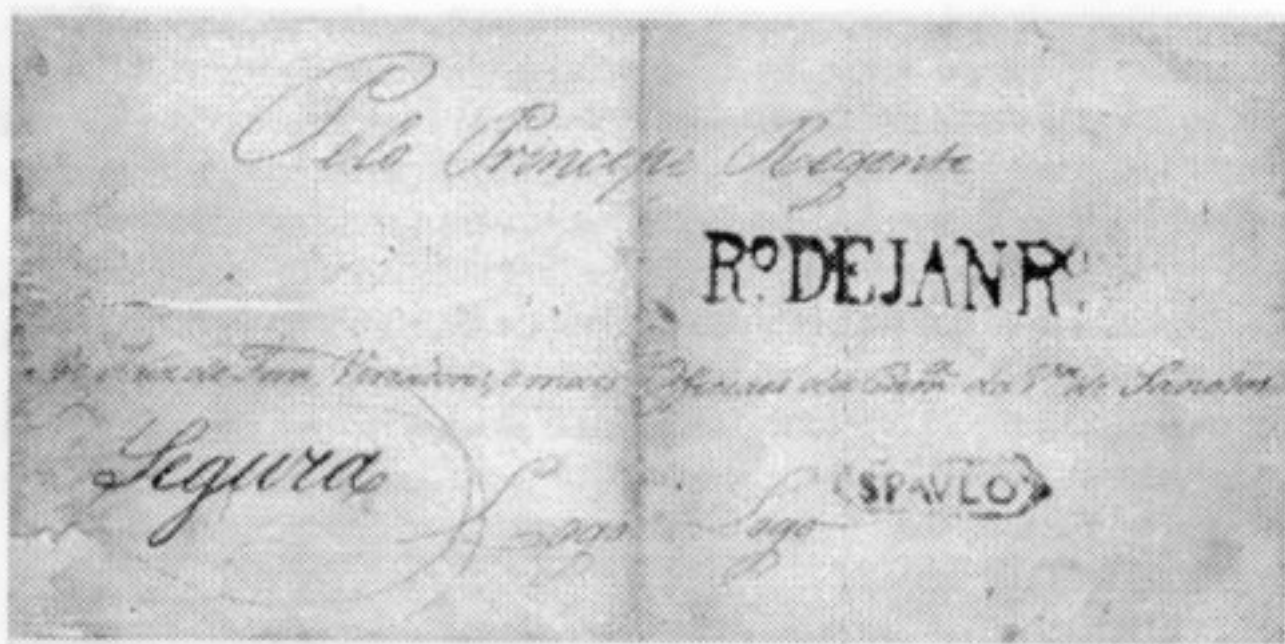 Pelo Principe Regente
Rº. DEJANRº.
Juiz de Fora Vereadores, e mais Officiaes da Camª. da Vª. de
Segura
Logo Logo
SPAVLO